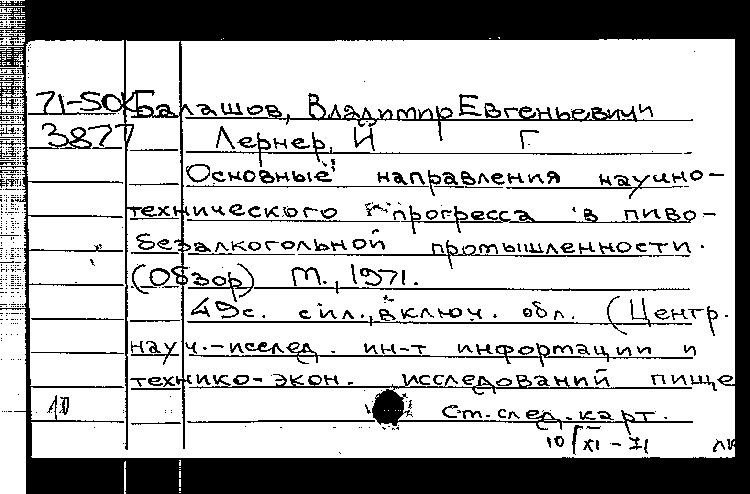 71-5ОК Балашов, Владимир Евгеньевич и
3877 Лернер, И Г
Основные направления научно-
технического прогресса в пиво-
безалкогольной промышленности.
(Обзор) М., 1971.
49с. с ил., включ. обл. (Центр.
науч.-исслед. ин-т информации и
технико-экон. исследований пище
10 См. след. карт.
10/XI-71